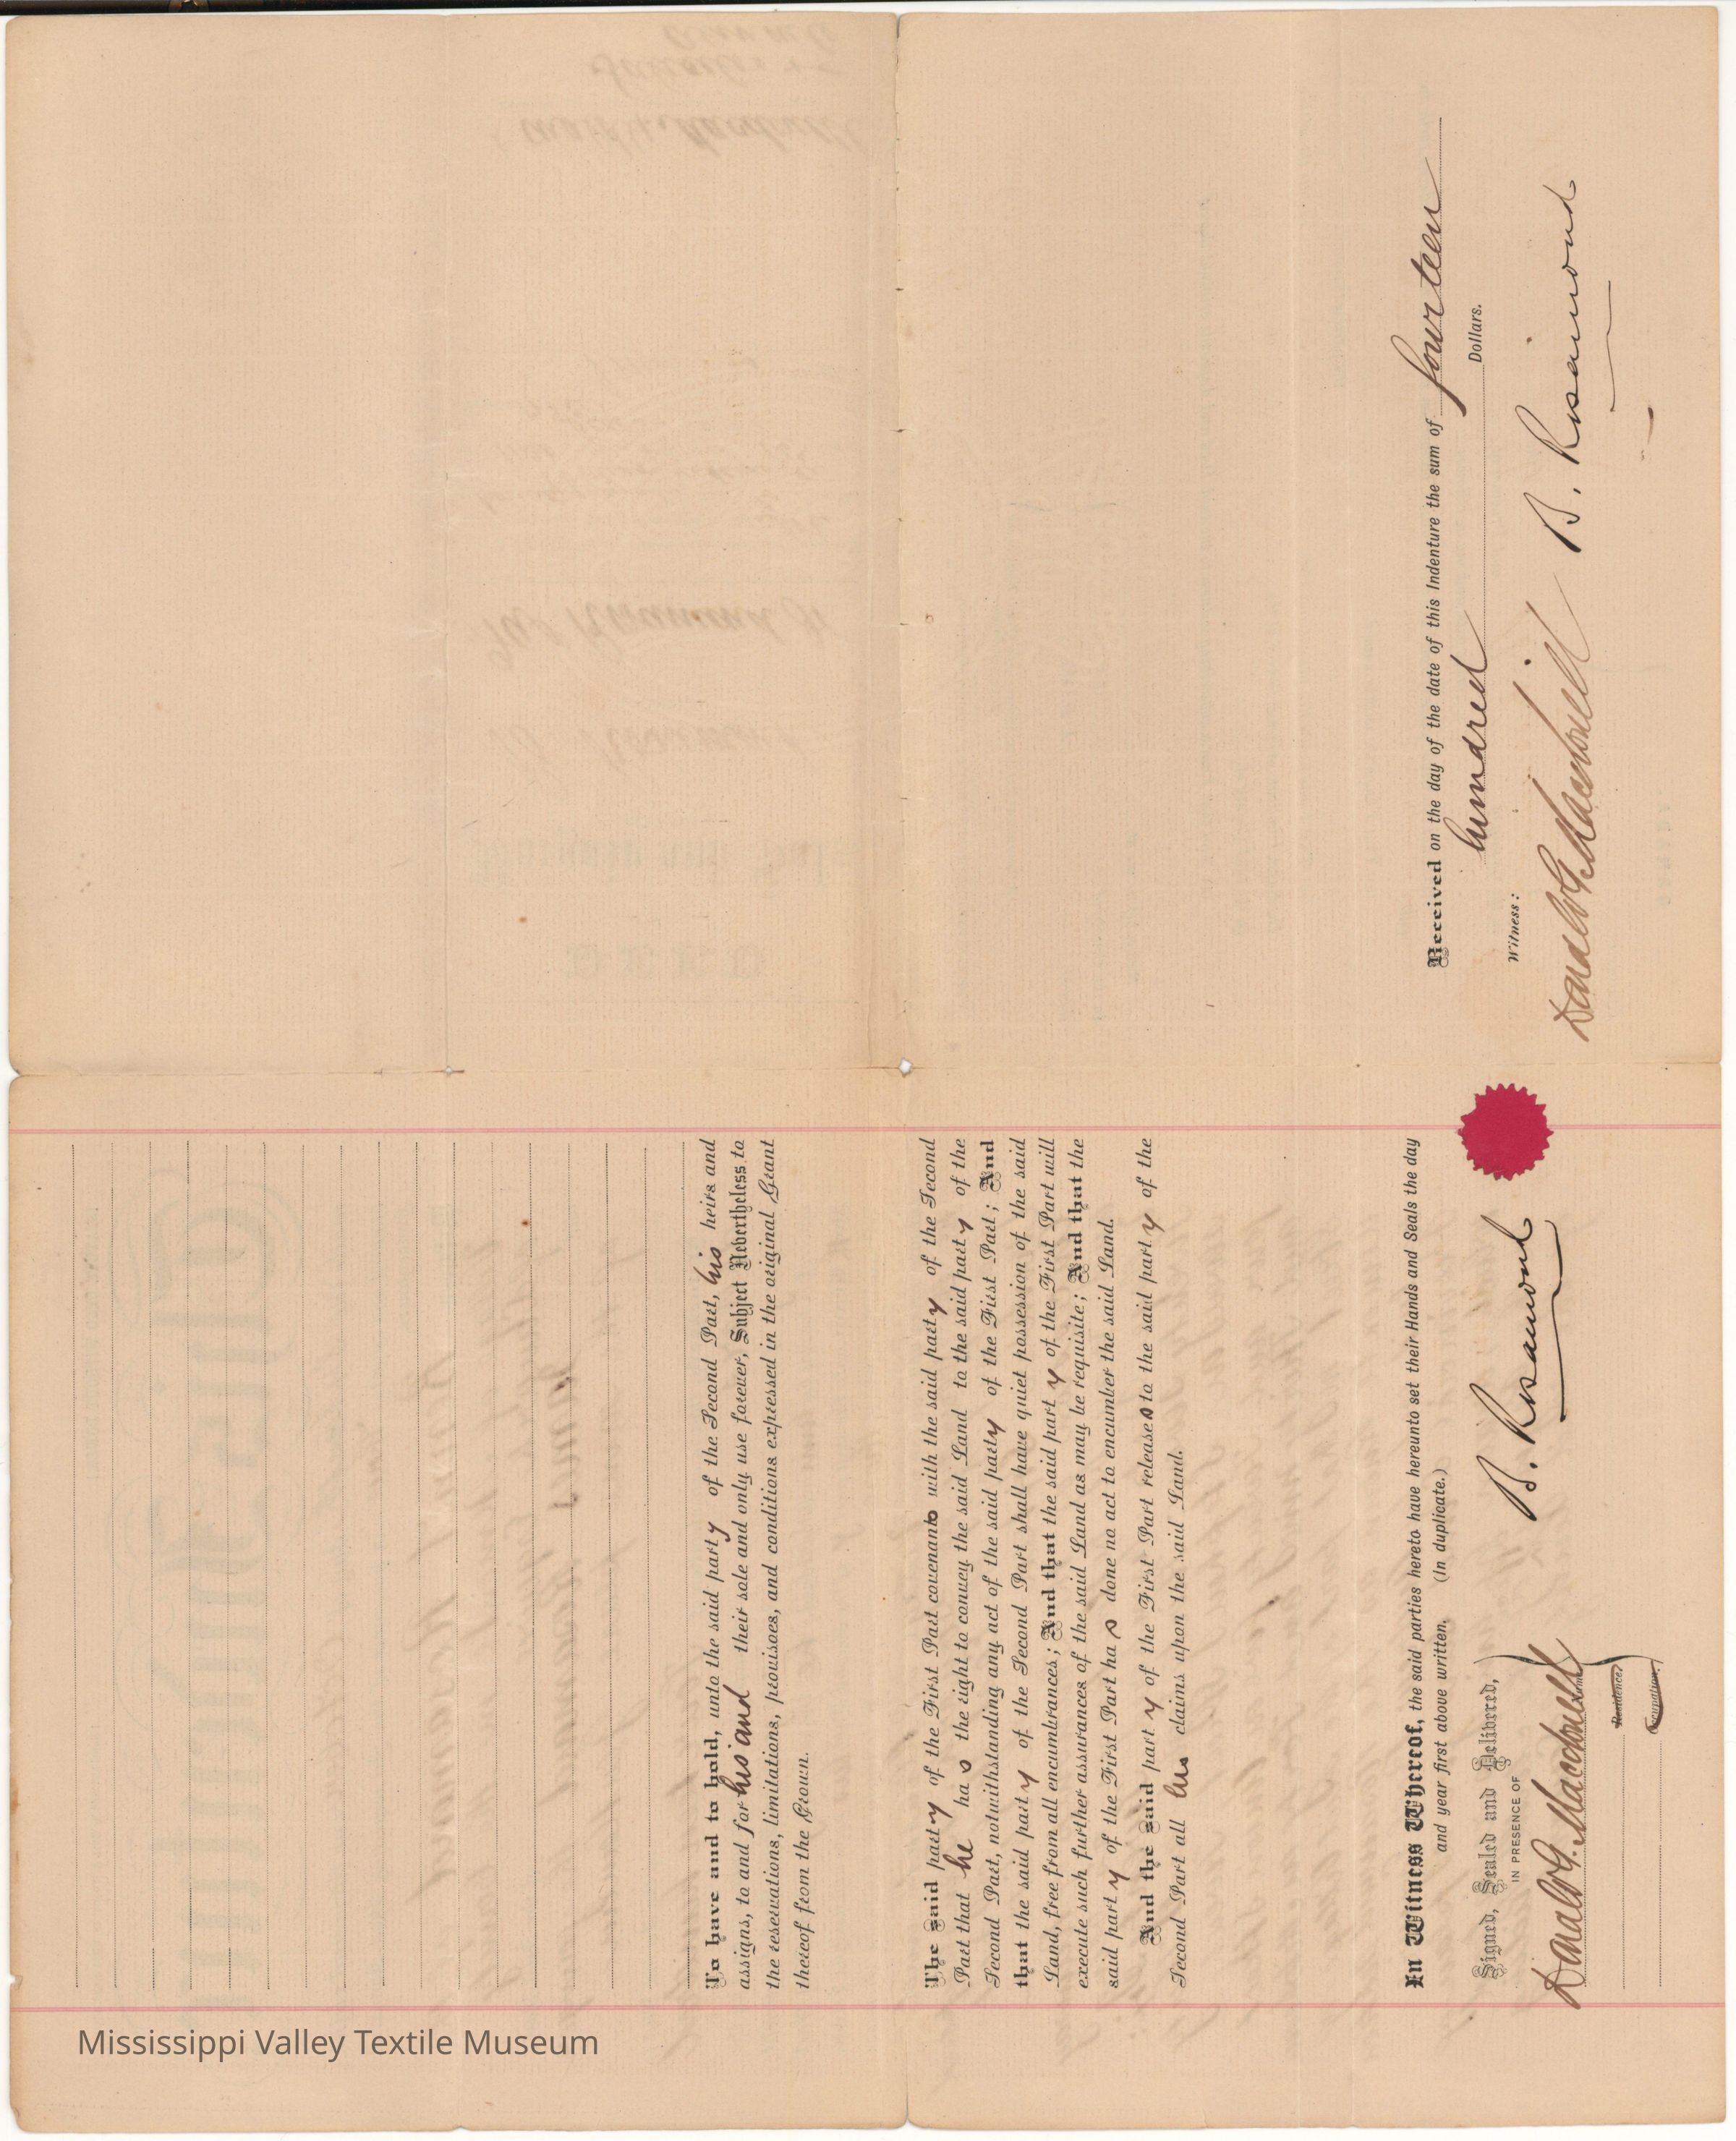 To have and to hold, unto the said party of the Second Part, his heirs and
assigns, to and for his and their sole and only use forever, Subject Nevertheless to
the reservations, limitations, provisoes, and conditions expressed in the original Grant
thereof from the Crown.
The said party of the First Part covenants with the said party of the Second
Part that he has the right to convey the said Land to the said party of the
Second Part, notwithstanding any act of the said party of the First Part; And
that the said party of the Second Part shall have quiet possession of the said
Land, free from all encumbrances; And that the said party of the First Part will
execute such further assurances of the said Land as may be requisite; And that the
said party of the First Part has done no act to encumber the said Land.
And the said party of the First Part releases to the said party of the
Second Part all his claims upon the said Land.
In Witness Whereof, the said parties hereto have hereunto set their Hands and Seals the day
and year first above written. (In duplicate.)
Signed, Sealed and Delivered,
IN PRESENCE OF
Donald G. Macdonell
B. Rosamond
Residence.
Occupation.
Received on the day of the date of this Indenture the sum of fourteen
hundred Dollars.
Witness:
Donald G. Macdonell B. Rosamond
Mississippi Valley Textile Museum